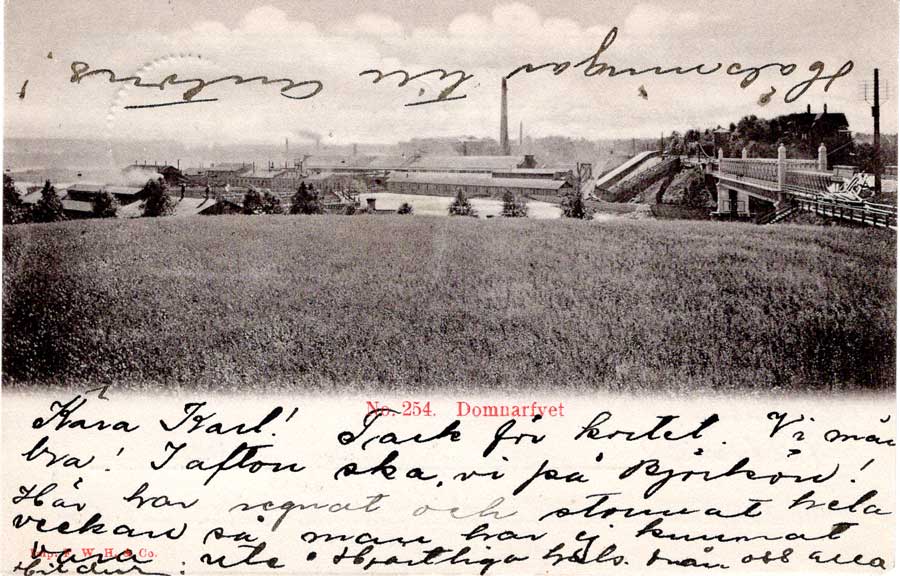 Hälsningar till Antons!
No. 254. Domnarfvet
Kära Karl! Tack för kortet. Vi mår
bra! I afton ska, vi på Björkön!
Här har regnat och stormat hela
veckan så man har ej kunnat
Imp. F. W. H. & Co.
vara ute. Hjärtliga häls. från oss alla
Hildur.